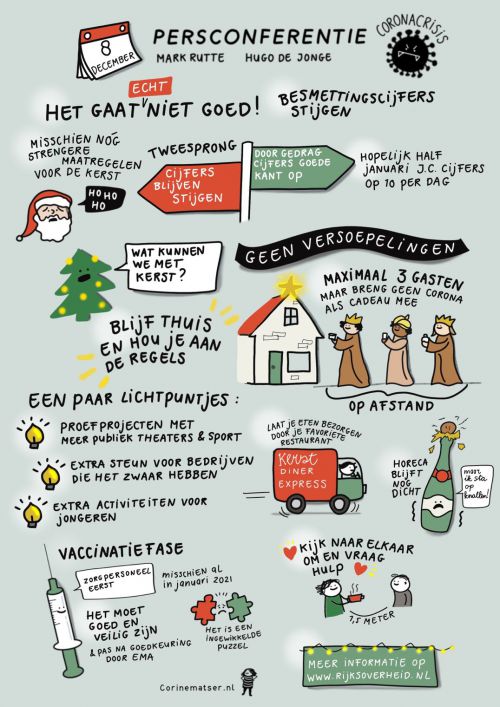 8
DECEMBER
PERSCONFERENTIE
MARK RUTTE HUGO DE JONGE
CORONACRISIS
ECHT
HET GAAT NIET GOED!
BESMETTINGSCIJFERS
STIJGEN
MISSCHIEN NÓG
STRENGERE
MAATREGELEN
VOOR DE KERST
HO HO
HO
TWEESPRONG
CIJFERS
BLIJVEN
STIJGEN
DOOR GEDRAG
CIJFERS GOEDE
KANT OP
HOPELIJK HALF
JANUARI I.C. CIJFERS
OP 10 PER DAG
WAT KUNNEN
WE MET
KERST?
GEEN VERSOEPELINGEN
MAXIMAAL 3 GASTEN
MAAR BRENG GEEN CORONA
ALS CADEAU MEE
BLIJF THUIS
EN HOU JE AAN
DE REGELS
OP AFSTAND
EEN PAAR LICHTPUNTJES:
PROEFPROJECTEN MET
MEER PUBLIEK THEATERS & SPORT
EXTRA STEUN VOOR BEDRIJVEN
DIE HET ZWAAR HEBBEN
EXTRA ACTIVITEITEN VOOR
JONGEREN
LAAT JE ETEN BEZORGEN
DOOR JE FAVORIETE
RESTAURANT
Kerst
DINER
EXPRESS
HORECA
BLIJFT
NOG
DICHT
maar
ik sta
op
knallen!
VACCINATIEFASE
ZORGPERSONEEL
EERST
misschien al
in januari 2021
HET MOET
GOED EN
VEILIG ZIJN
& PAS NA GOEDKEURING
DOOR EMA
HET IS EEN
INGEWIKKELDE
PUZZEL
KIJK NAAR ELKAAR
OM EN VRAAG
HULP
1,5 METER
MEER INFORMATIE OP
WWW.RIJKSOVERHEID.NL
Corinematser.nl